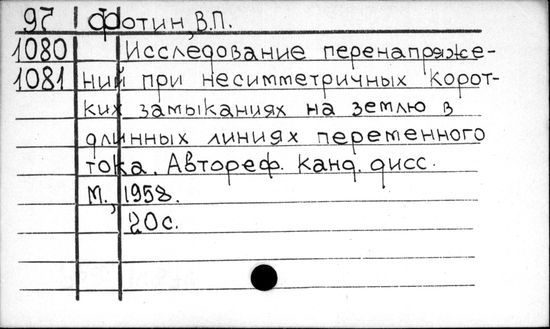 97 Фотин, В.П.
1080 Исследование перенапряже-
1081 ний при несимметричных корот-
ких замыканиях на землю в
длинных линиях переменного
тока. Автореф. канд. дисс.
М., 1958.
20с.